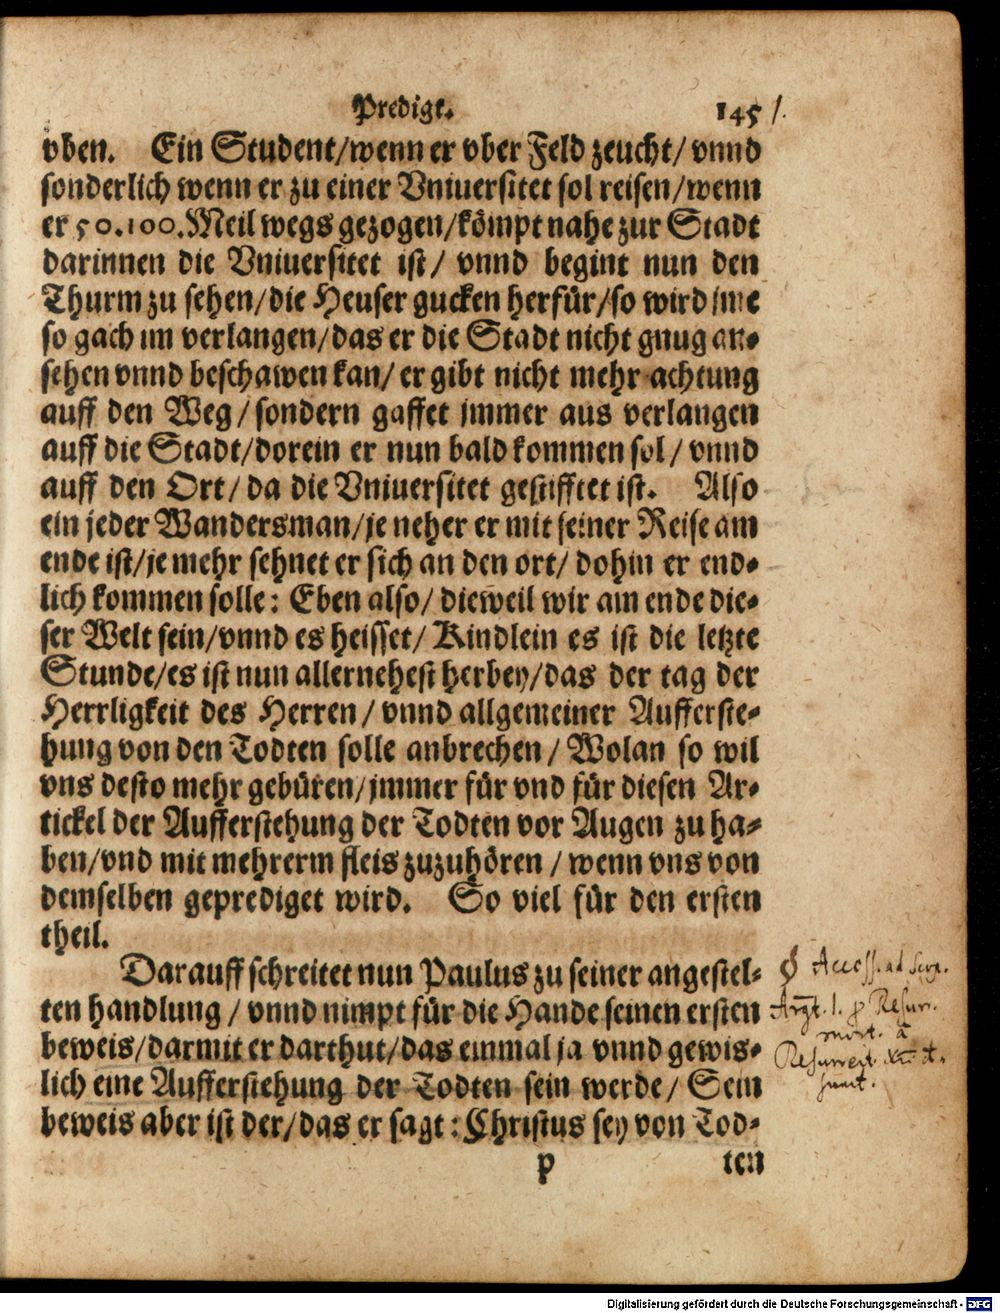 Predigt. 145
vben. Ein Student/wenn er vber Feld zeucht/ vnnd
sonderlich wenn er zu einer Vniuersitet sol reisen/wenn
er 50.100.Meil wegs gezogen/kömpt nahe zur Stadt
darinnen die Vniuersitet ist/ vnnd begint nun den
Thurm zu sehen/die Heuser gucken herfür/so wird jme
so gach im verlangen/das er die Stadt nicht gnug an-
sehen vnnd beschawen kan/ er gibt nicht mehr achtung
auff den Weg/ sondern gaffet jmmer aus verlangen
auff die Stadt/dorein er nun bald kommen sol/ vnnd
auff den Ort/ da die Vniuersitet gestifftet ist. Also
ein jeder Wandersman/je neher er mit seiner Reise am
ende ist/je mehr sehnet er sich an den ort/ dohin er end-
lich kommen solle: Eben also/ dieweil wir am ende die-
ser Welt sein/vnnd es heisset/ Kindlein es ist die letzte
Stunde/es ist nun allernehest herbey/das der tag der
Herrligkeit des Herren/ vnnd allgemeiner Aufferste-
hung von den Todten solle anbrechen/ Wolan so wil
vns desto mehr gebüren/jmmer für vnd für diesen Ar-
tickel der Aufferstehung der Todten vor Augen zu ha-
ben/vnd mit mehrerm fleis zuzuhören/ wenn vns von
demselben geprediget wird. So viel für den ersten
theil.
Darauff schreitet nun Paulus zu seiner angestel-
ten handlung/ vnnd nimpt für die Hande seinen ersten
beweis/darmit er darthut/das einmal ja vnnd gewis-
lich eine Aufferstehung der Todten sein werde/ Sein
beweis aber ist der/das er sagt: Christus sey von Tod-
p ten
Digitalisierung gefördert durch die Deutsche Forschungsgemeinschaft - DFG